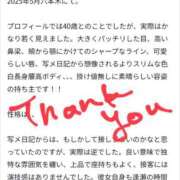 2025年5月六本木にて。
プロフィールでは40歳とのことでしたが、実際はか
なり若く見えました。大きくパッチリした目、高い
鼻梁、頬から顎にかけてのシャープなライン、可愛
らしい唇。写メ日記から想像されるよりスリムな色
白長身層高ボディ、、、掛け値無しに素晴らしい容姿
の持ち主です！！
Thank
you
性格は
写メ日記からは、もしかして接しにくいのかなっ
ていたのですが、実際は逆でした。良い意味で独
特な雰囲気を纏い、上品で座持ちもよく、接客には
演技感はありませんでした。彼女自身も逢瀬の時間